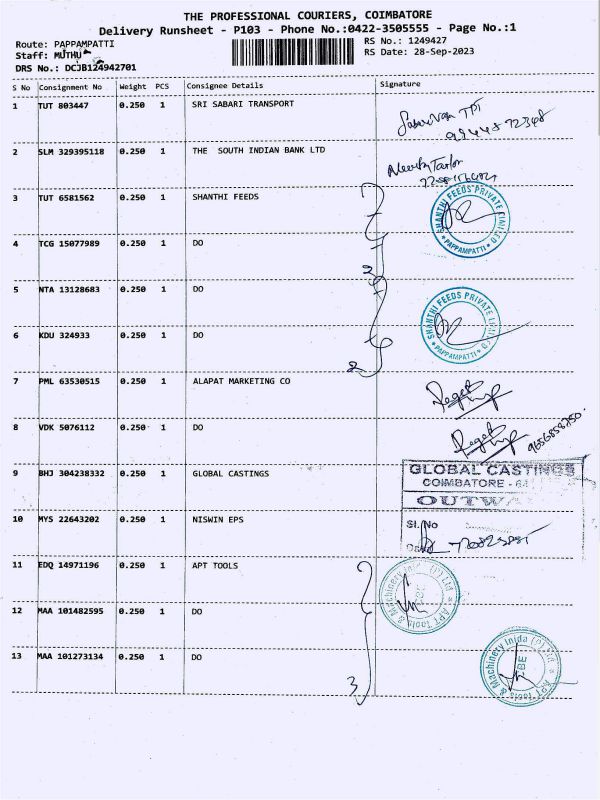 THE PROFESSIONAL COURIERS, COIMBATORE
Delivery Runsheet - P103 - Phone No.:0422-3505555 - Page No.:1
Route: PAPPAMPATTI
Staff: MUTHU
DRS No.: DCJB124942701
RS No.: 1249427
RS Date: 28-Sep-2023
S No Consignment No Weight PCS Consignee Details Signature
1 TUT 803447 0.250 1 SRI SABARI TRANSPORT
2 SLM 329395118 0.250 1 THE SOUTH INDIAN BANK LTD
3 TUT 6581562 0.250 1 SHANTHI FEEDS
SHANTHI FEEDS PRIVATE LIMITED
* PAPPAMPATTI *
4 TCG 15077989 0.250 1 DO
2
5 NTA 13128683 0.250 1 DO
SHANTHI FEEDS PRIVATE LIMITED
* PAPPAMPATTI *
6 KDU 324933 0.250 1 DO
2
7 PML 63530515 0.250 1 ALAPAT MARKETING CO
8 VDK 5076112 0.250 1 DO
9656858250
9 BHJ 304238332 0.250 1 GLOBAL CASTINGS
GLOBAL CASTINGS
COIMBATORE - 64
10 MYS 22643202 0.250 1 NISWIN EPS
Sl. No
11 EDQ 14971196 0.250 1 APT TOOLS
APT Tools & Machinery India (P) Ltd
12 MAA 101482595 0.250 1 DO
13 MAA 101273134 0.250 1 DO
APT Tools & Machinery India (P) Ltd
CBE
3